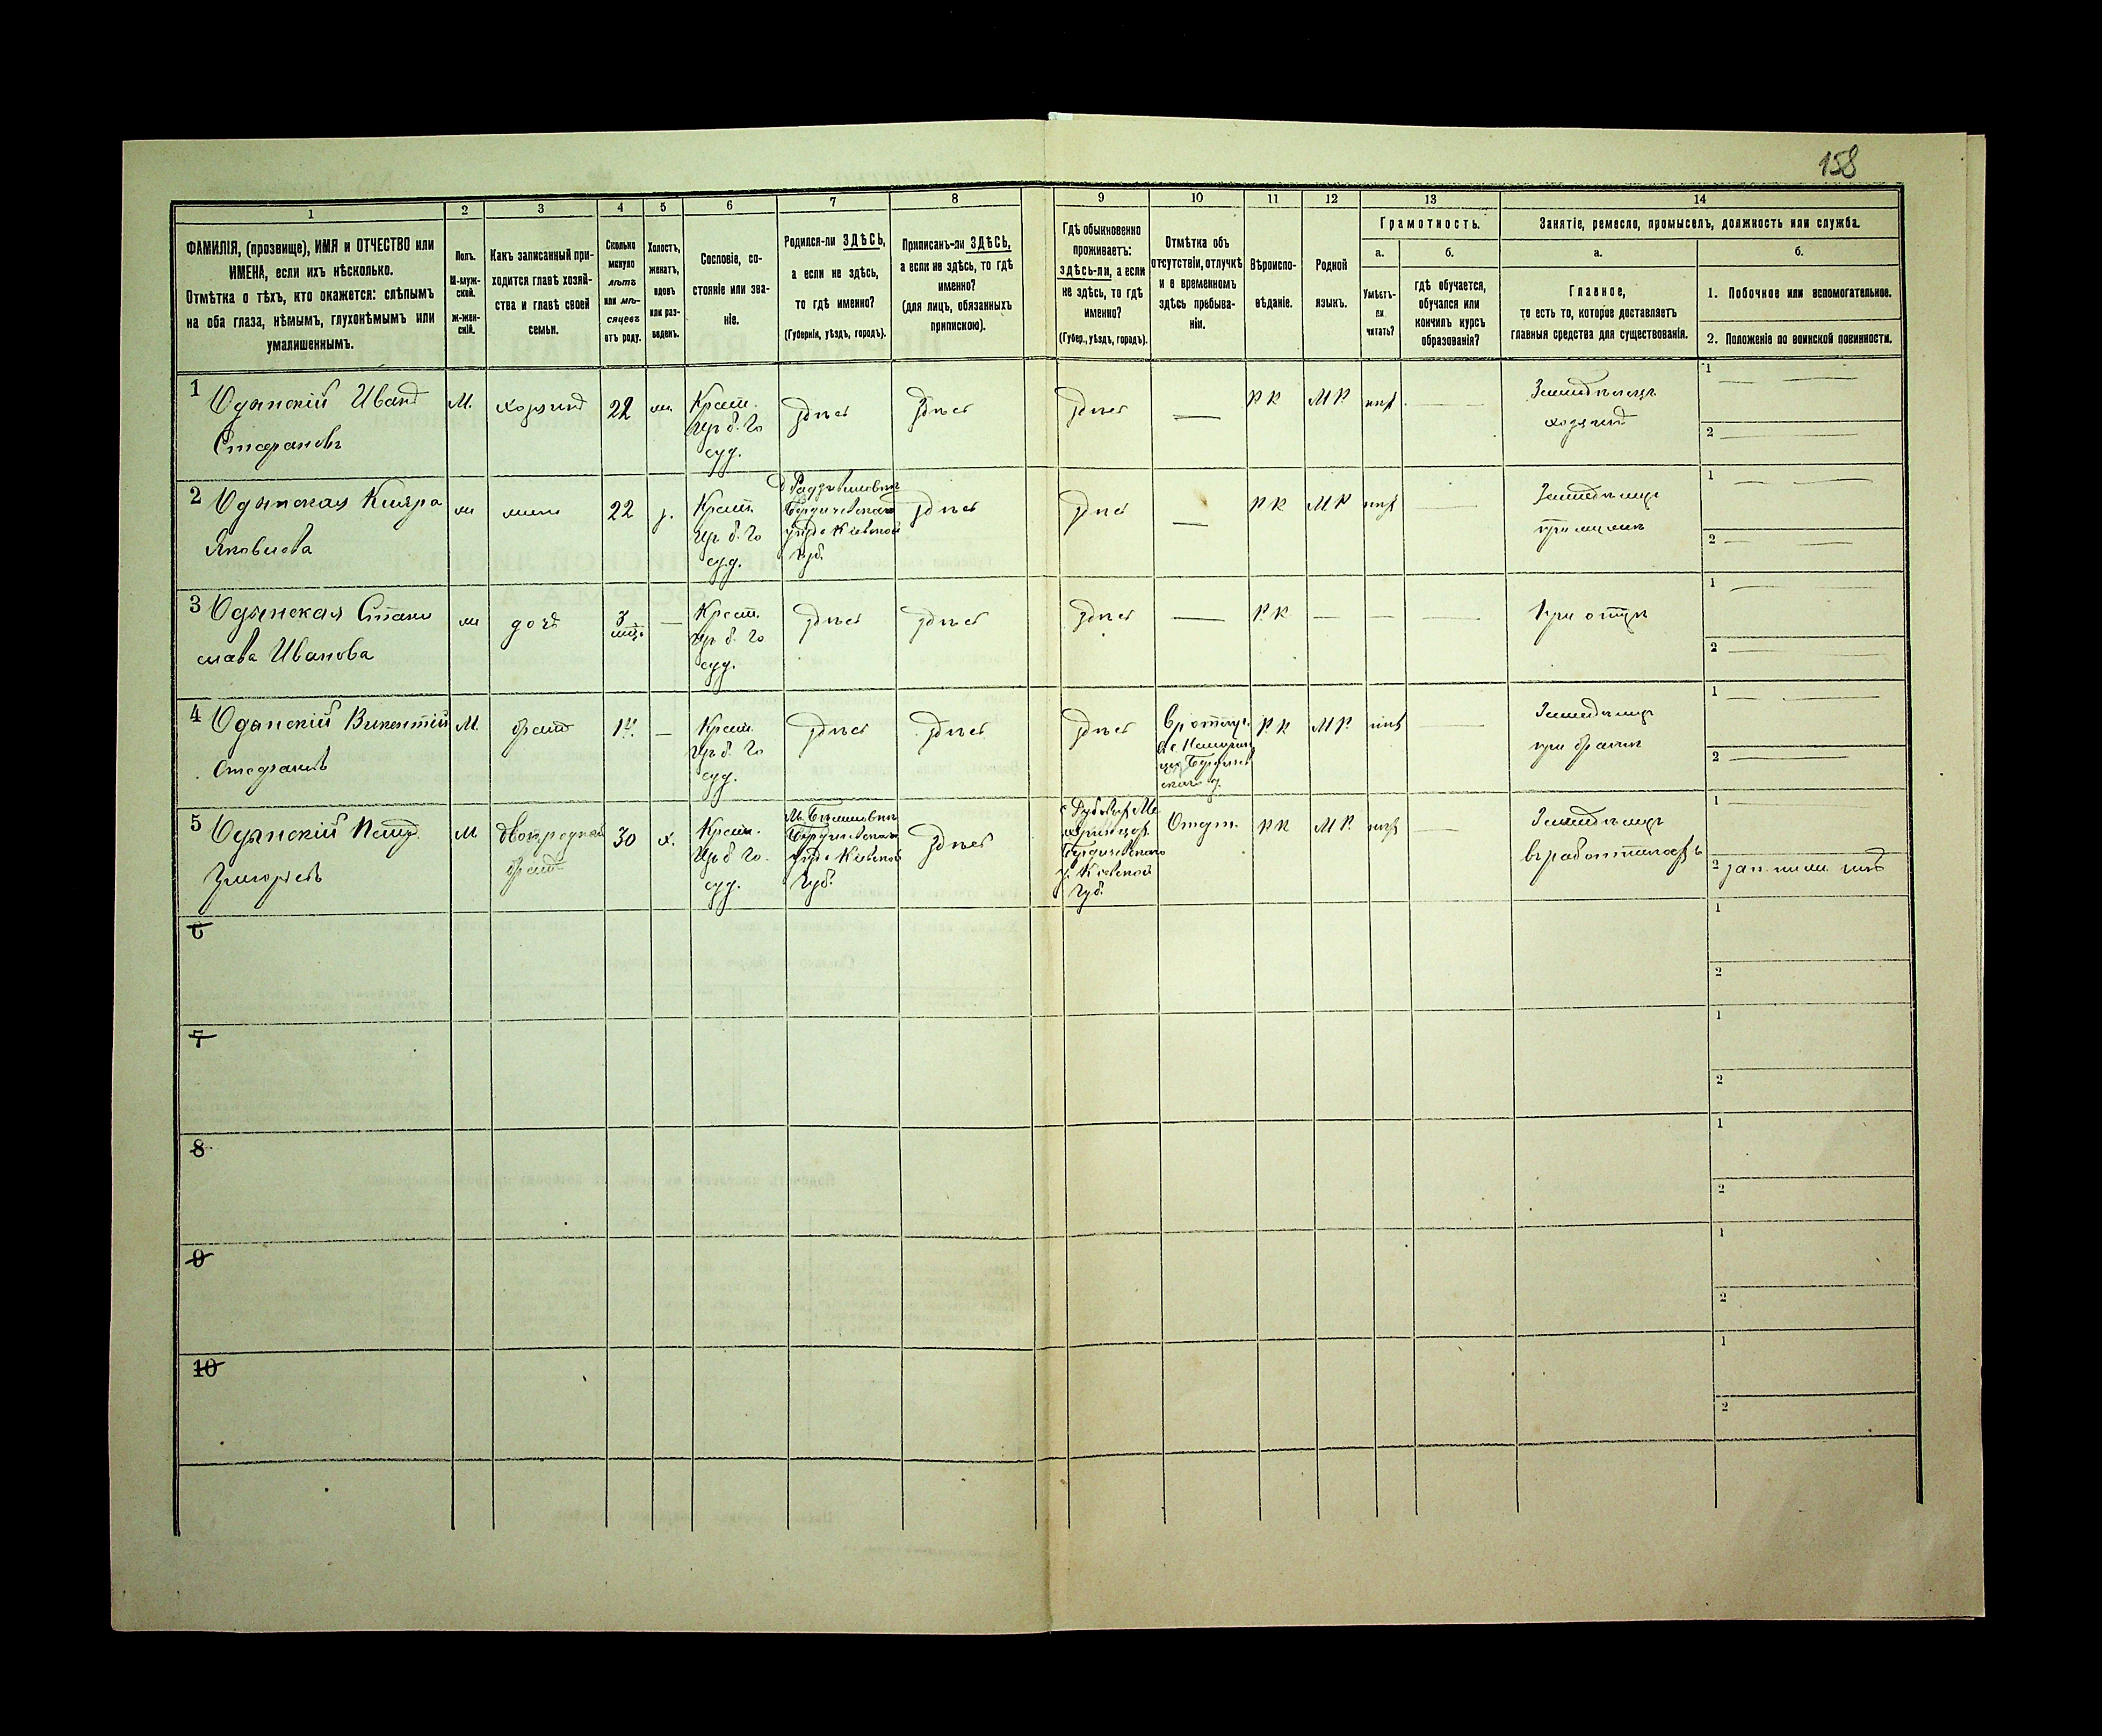 158
1 2 3 4 5 6 7 8 9 10 11 12 13 14
ФАМИЛІЯ, (прозвище), ИМЯ и ОТЧЕСТВО или
ИМЕНА, если ихъ нѣсколько.
Отмѣтка о тѣхъ, кто окажется: слѣпымъ
на оба глаза, нѣмымъ, глухонѣмымъ или
умалишеннымъ.
Полъ.
М-муж-
ской.
Ж-жен-
скій.
Какъ записанный при-
ходится главѣ хозяй-
ства и главѣ своей
семьи.
Сколько
минуло
лѣтъ
или мѣ-
сяцевъ
отъ роду.
Холостъ,
женатъ,
вдовъ
или раз-
веденъ.
Сословіе, со-
стояніе или зва-
ніе.
Родился-ли ЗДѢСЬ,
а если не здѣсь,
то гдѣ именно?
(Губернія, уѣздъ, городъ).
Приписанъ-ли ЗДѢСЬ,
а если не здѣсь, то гдѣ
именно?
(для лицъ, обязанныхъ
припискою).
Гдѣ обыкновенно
проживаетъ:
здѣсь-ли, а если
не здѣсь, то гдѣ
именно?
(Губер., уѣздъ, городъ).
Отмѣтка объ
отсутствіи, отлучкѣ
и о временномъ
здѣсь пребыва-
ніи.
Вѣроиспо-
вѣданіе.
Родной
языкъ.
Грамотность.
а.
Умѣетъ-
ли
читать?
б.
гдѣ обучается,
обучался или
кончилъ курсъ
образованія?
Занятіе, ремесло, промыселъ, должность или служба.
а.
Главное,
то есть то, которое доставляетъ
главныя средства для существованія.
б.
1. Побочное или вспомогательное.
2. Положеніе по воинской повинности.
1 Одынскій Иванъ
Стефановъ
М.
хозяинъ
22
Крест.
Изъ б. Го
суд.
здѣсь
здѣсь
здѣсь
—
РК
МР.
нѣтъ
—
Земледѣлецъ
хозяинъ
1 — —
2 —
2 Одынская Кляра
Яковлева
ж
жена
22
з.
Крест.
Изъ б. Го
суд.
Бердичевскаго
уѣзда Кіевской
Губ.
здѣсь
здѣсь
—
РК
МР
нѣтъ
—
при мужѣ
1 — —
2 — —
3 Одынская Стани
слава Иванова
ж
дочь
3
мѣс.
—
Крест.
Изъ б. Го
суд.
здѣсь
здѣсь
здѣсь
—
Р.К
—
—
—
При отцѣ
1
2
4 Одынскій Викентій
Стефановъ
М.
братъ
—
Крест.
Изъ б. Го
суд.
здѣсь
здѣсь
здѣсь
РК
МР.
нѣтъ
—
при братѣ
1
2
5 Одынскій Петръ
Григорьевъ
М
двоюродный
братъ
30
х.
Крест.
Изъ б Го.
суд.
Бердичевскаго
уѣзда Кіевской
Губ.
здѣсь
Бердичевскаго
у. Кіевской
Губ.
РК
МР.
нѣтъ
—
1
2
6
1
2
7
1
2
8
1
2
9
1
2
10
1
2